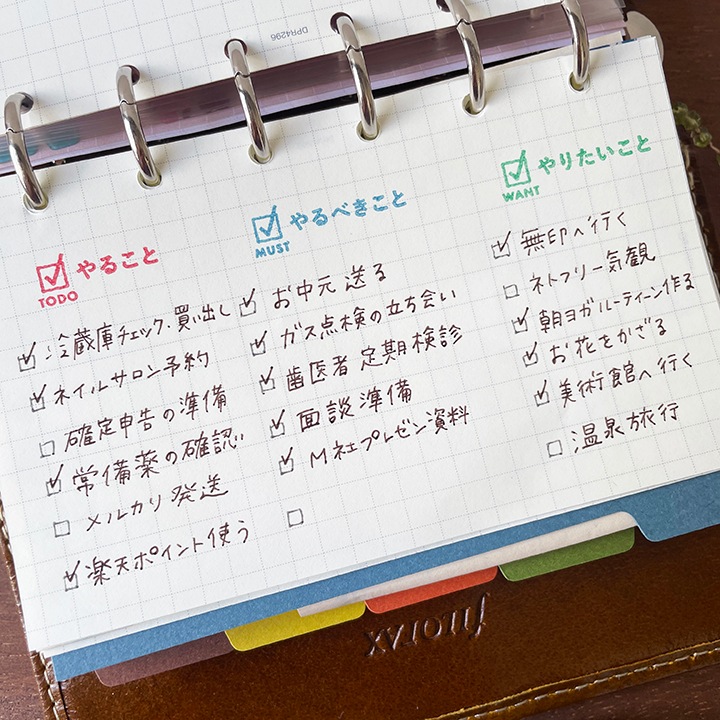 DPR4296
やること
TODO
冷蔵庫チェック・買い出し
ネイルサロン予約
確定申告の準備
常備薬の確認
メルカリ発送
楽天ポイント使う
やるべきこと
MUST
お中元送る
ガス点検の立ち会い
歯医者定期検診
面談準備
M社プレゼン資料
やりたいこと
WANT
無印へ行く
ネトフリ一気観
朝ヨガルーティーン作る
お花をかざる
美術館へ行く
温泉旅行
filofax